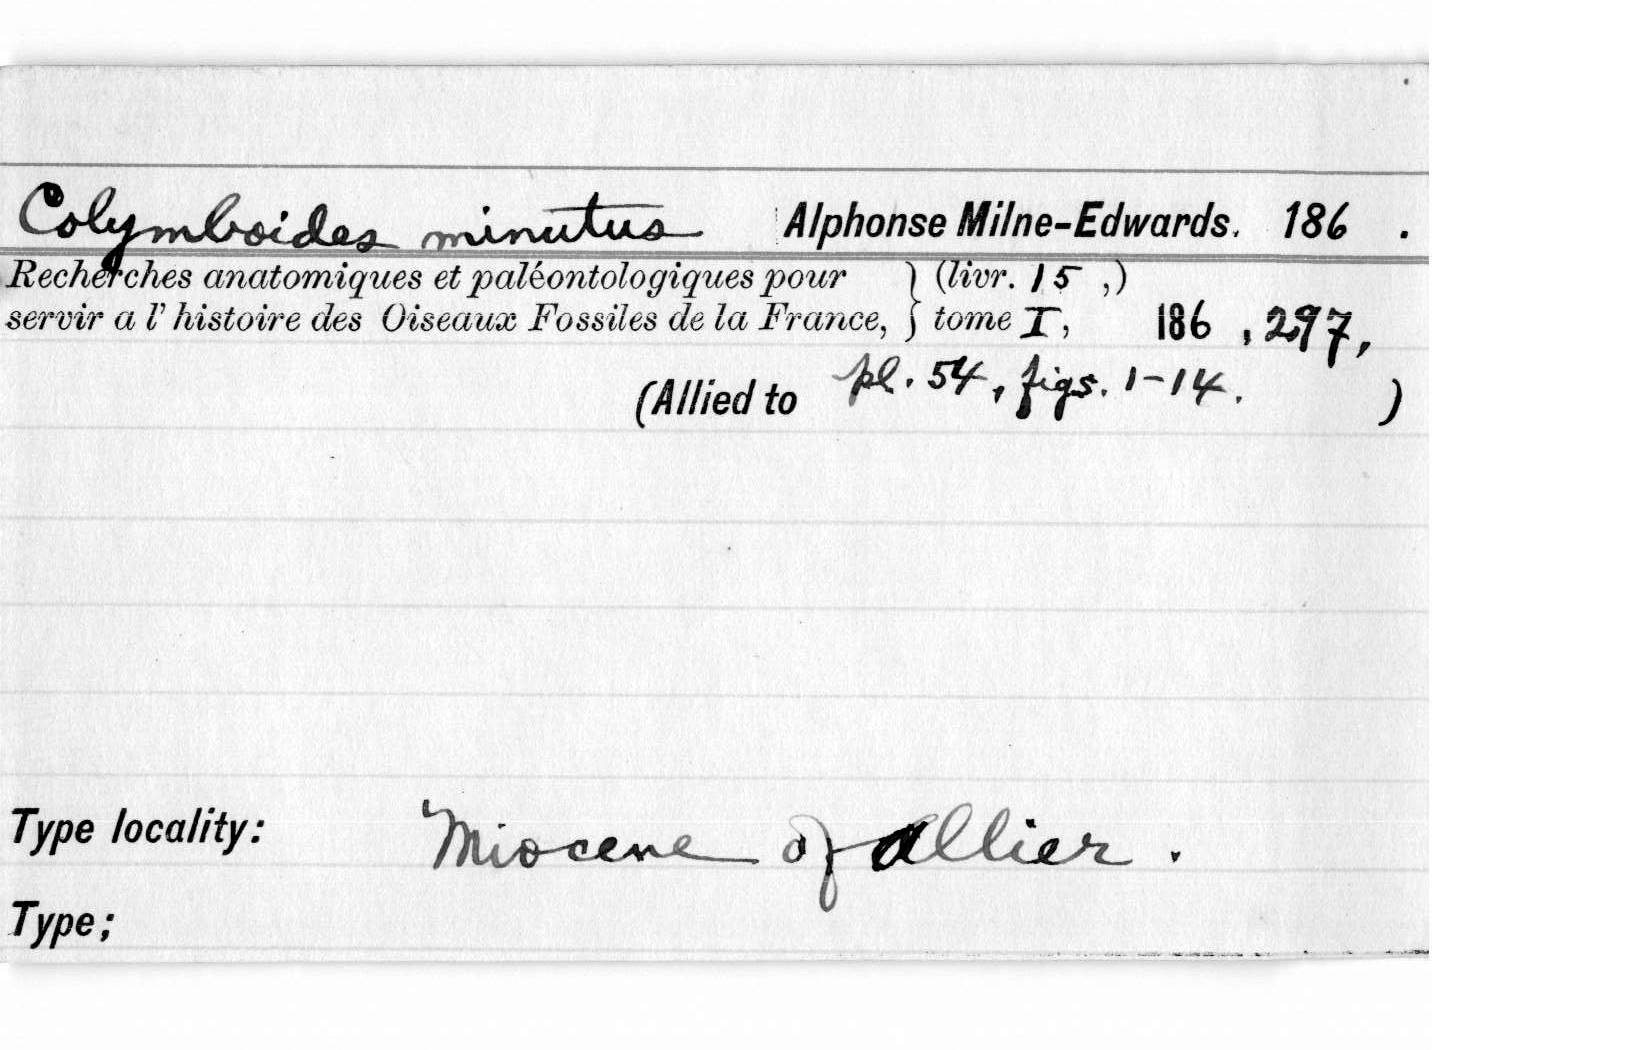 Colymboides minutus Alphonse Milne-Edwards. 186 .
Recherches anatomiques et paléontologiques pour } (livr. 15 ,)
servir a l' histoire des Oiseaux Fossiles de la France, } tome I, 186 , 297,
(Allied to pl. 54, figs. 1-14. )
Type locality: Miocene of Allier.
Type;